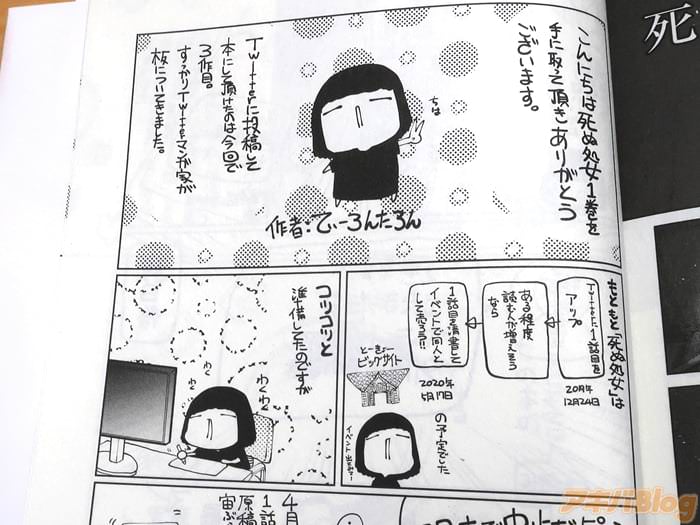 こんにちは死ぬ処女1巻を
手に取って頂きありがとう
ございます。
ちは
Twitterに投稿して
本にして頂けたのは今回で
3作目。
すっかりTwitterマンガ家が
板についてきました。
作者:てぃーろんたろん
もともと「死ぬ処女」は
Twitterに1話目を
アップ
20
12月24日
ある程度
読む人が増えそう
なら
1話目を清書して
イベントで同人と
して売る!!
2020年
5月17日
とーきょー
ビッグサイト
の予定でした
コツコツと
準備してたのですが
わくわく
わくわく
4月
1話
原稿
死
アキバBlog